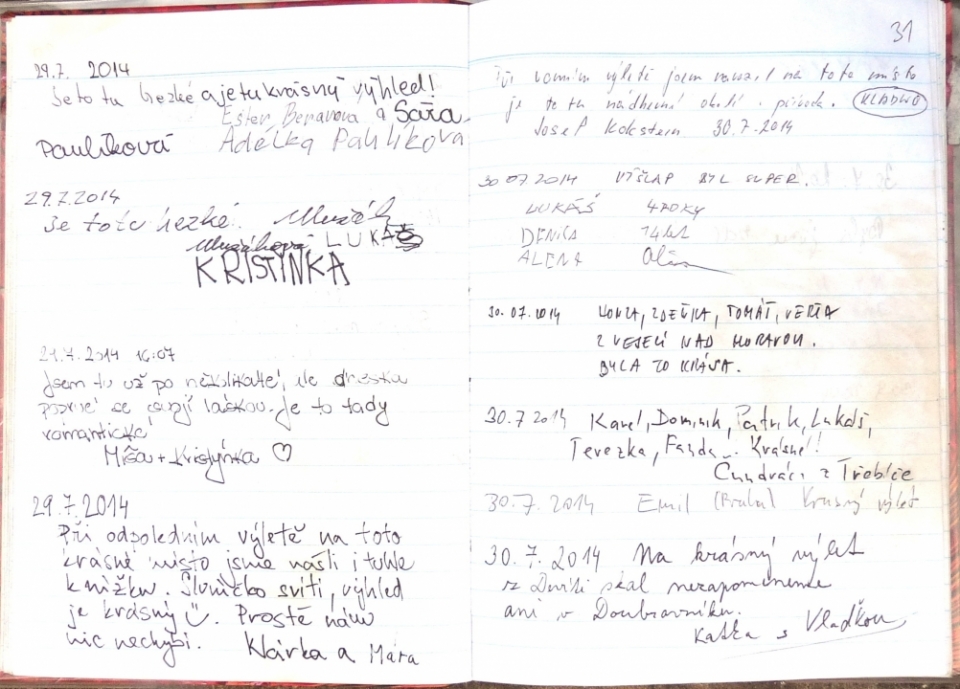 29.7. 2014
Je to tu hezké a je tu krásný výhled!
Ester Beranova a Sára
Paulíková Adélka Paulíková
29.7.2014
Je toto hezké.
LUKÁŠ
KRISTÍNKA
16:07
Jsem tu už po několikáté, ale dneska
poprvé se svojí láskou. Je to tady
romantické
Míša + Kristýnka ♡
29.7.2014
Při odpoledním výletě na toto
krásné místo jsme našli i tuhle
knížku. Sluníčko svítí, výhled
je krásný. Prostě nám
nic nechybí. Klárka a Mára
31
výletě jsem na toto místo
je to tu nádherné okolí. KLADNO
Josef 30.7.2014
30 07.2014 VÝŠLAP BYL SUPER.
LUKÁŠ 4 ROKY
DENISA 14 let
ALENA
30.07.2014 HONZA, ZDEŇKA, TOMÁŠ, VERČA
Z VESELÍ NAD MORAVOU.
BYLA TO KRÁSA.
30.7 2014 Karel, Dominik, Patrik, Lukáš,
Terezka, Fanda... Krásné!
Čundráci z Třebíče
30.7. 2014 Emil Krásný výlet
30.7.2014 Na krásný výlet
z skal nezapomeneme
ani v Doubravníku.
Katka s Vladkou